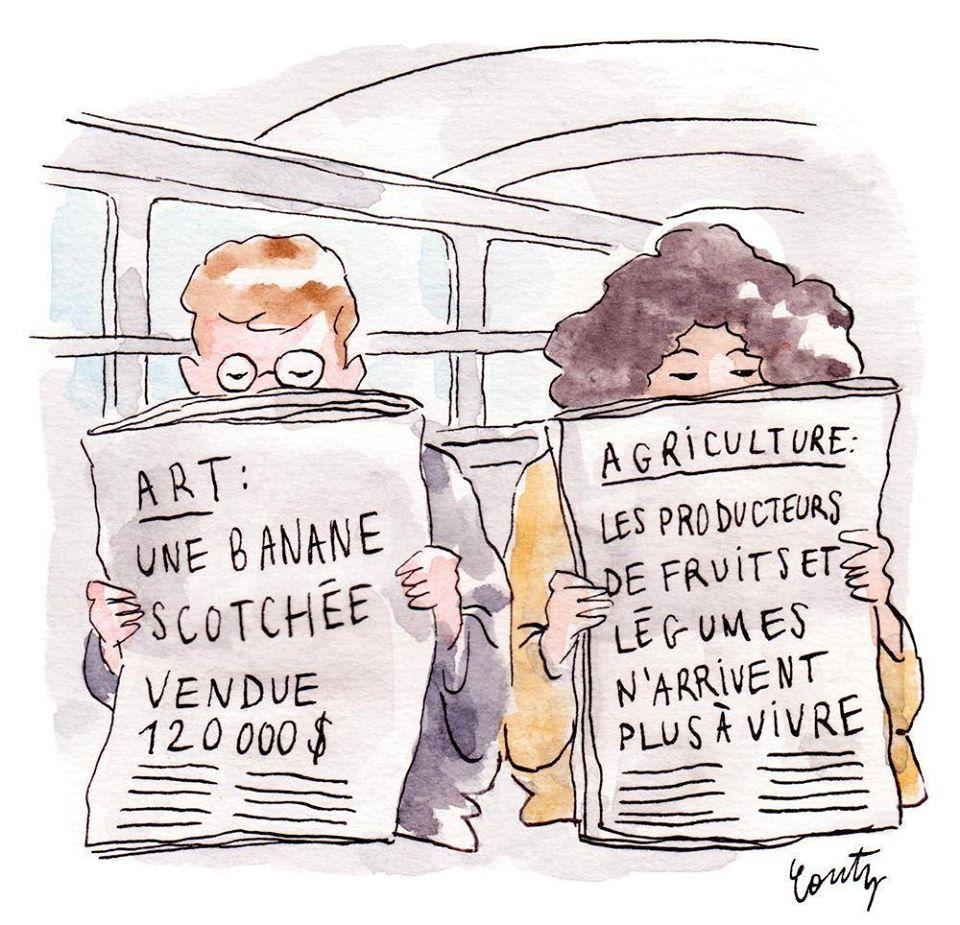 ART:
UNE BANANE
SCOTCHÉE
VENDUE
120 000 $
AGRICULTURE:
LES PRODUCTEURS
DE FRUITS ET
LÉGUMES
N'ARRIVENT
PLUS À VIVRE